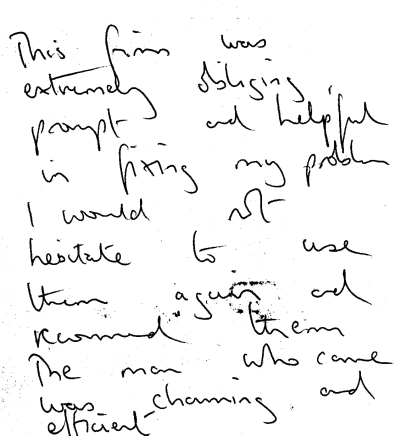 This firm was
extremely obliging,
prompt and helpful
in fixing my problem
I would not
hesitate to use
them again and
recommend them
The man who came
was charming and
efficient